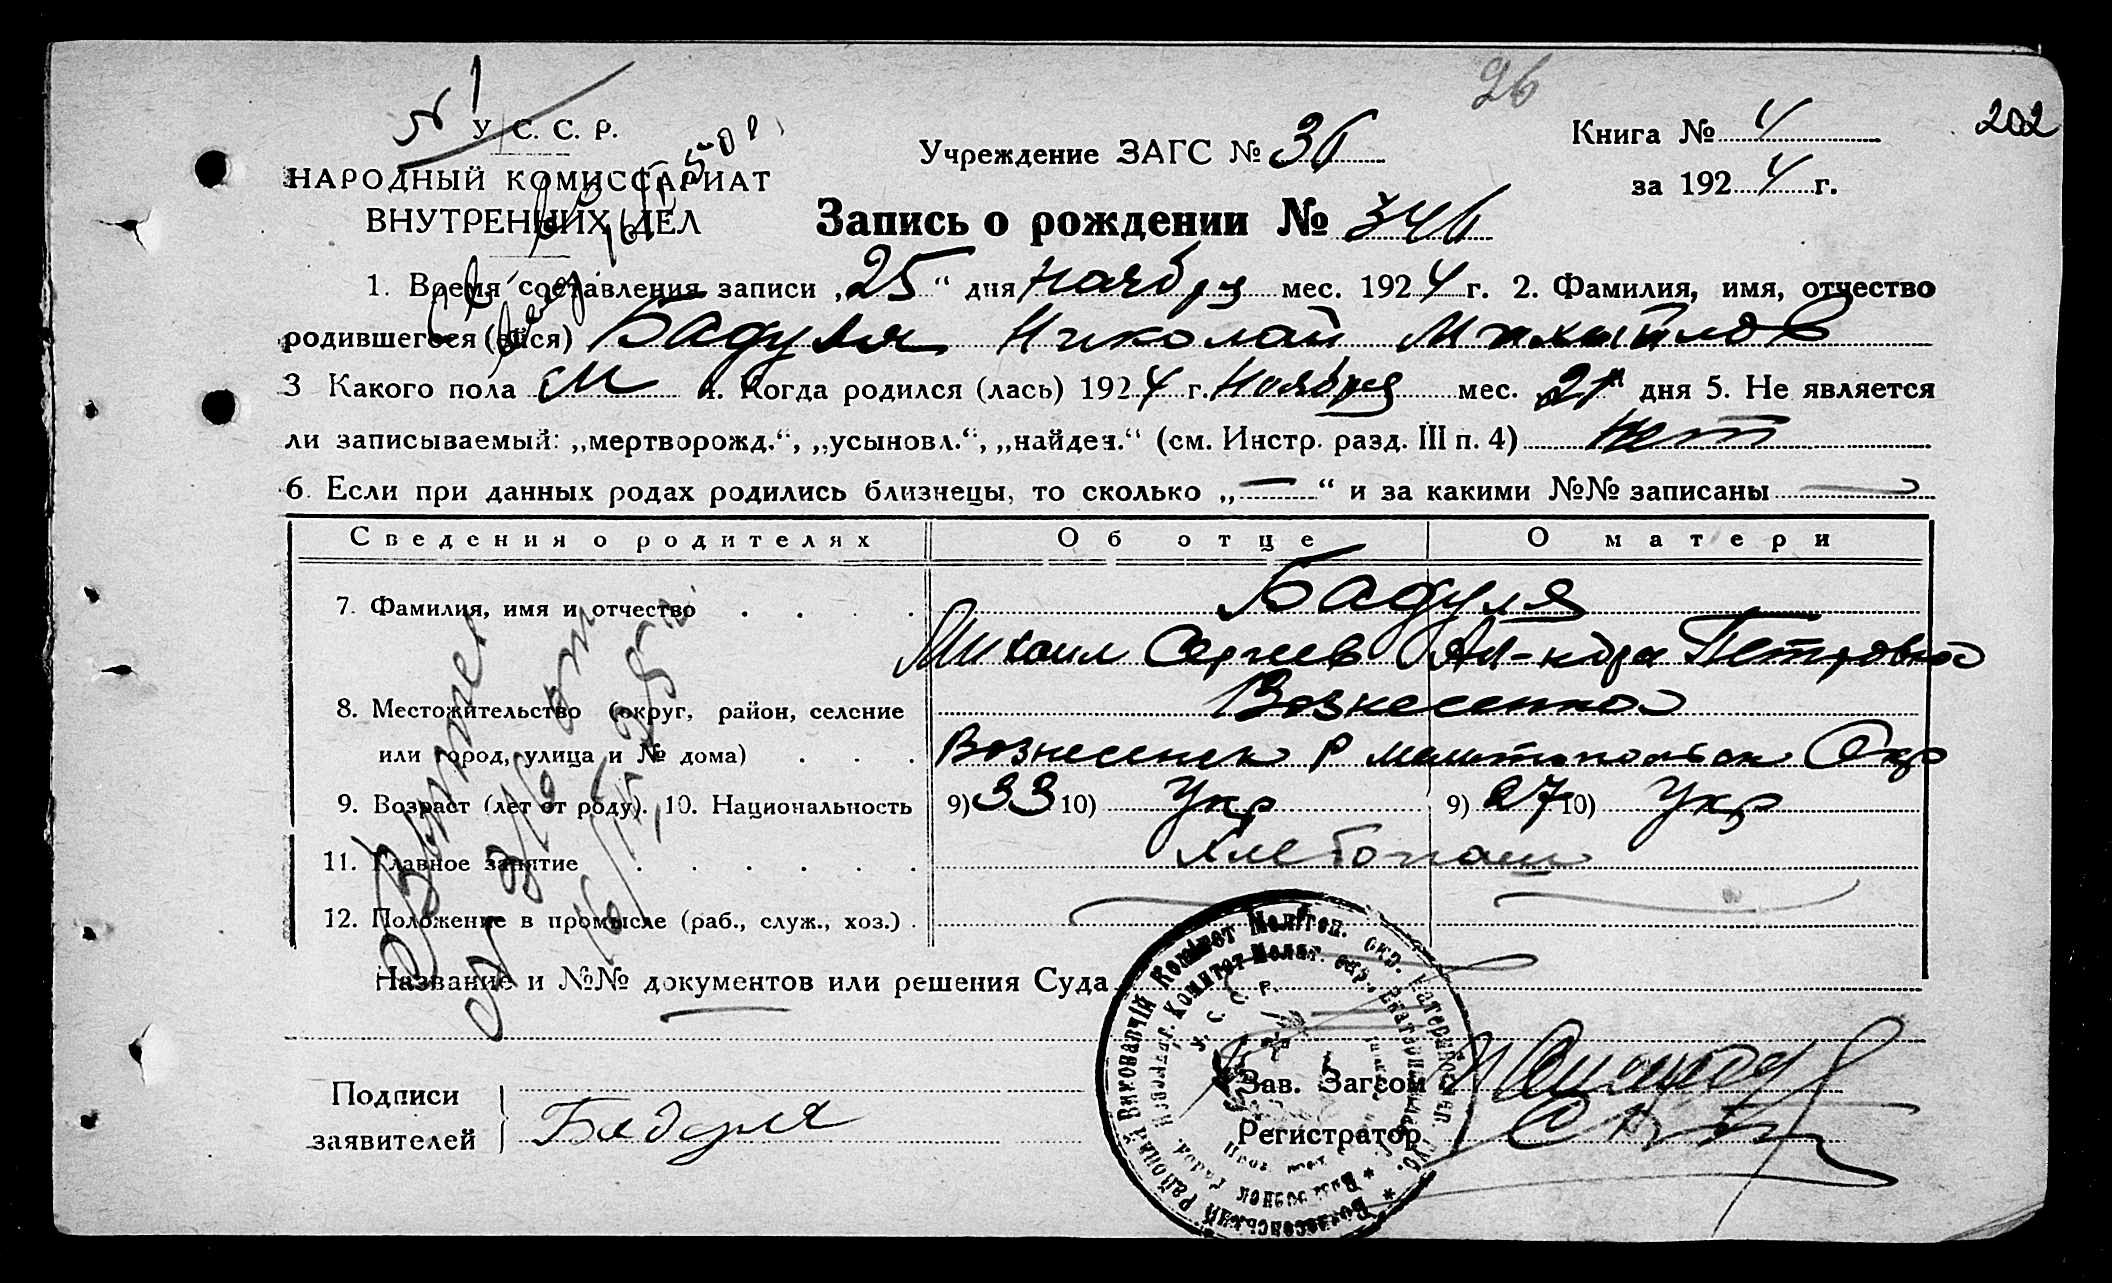 26
202
У. С. С. Р.
НАРОДНЫЙ КОМИССАРИАТ
ВНУТРЕННИХ ДЕЛ
Учреждение ЗАГС № 36
Книга № 4
за 1924 г.
Запись о рождении № 346
1. Время составления записи „25“ дня Ноября мес. 1924 г. 2. Фамилия, имя, отчество
родившегося (ейся) Бадуля Николай Михайлов
3 Какого пола М 4. Когда родился (лась) 1924 г. Ноября мес. 21 дня 5. Не является
ли записываемый: „мертворожд.“, „усыновл.“, „найден.“ (см. Инстр. разд. III п. 4) Нет
6. Если при данных родах родились близнецы, то сколько „—“ и за какими №№ записаны —
Сведения о родителях Об отце О матери
7. Фамилия, имя и отчество . . . . Бадуля
Михаил Сергеев Ал-ндра Петровна
8. Местожительство (округ, район, селение Вознесенка
или город, улица и № дома) . . . Вознесенск Р Мелитопольск Окр
9. Возраст (лет от роду). 10. Национальность 9) 33 10) Укр 9) 27 10) Укр
11. Главное занятие . . . . . . Хлебопаш
12. Положение в промысле (раб., служ., хоз.) .
Название и №№ документов или решения Суда
Подписи
заявителей Бадуля
Зав. Загсом
Регистратор
У. С. С. Р.